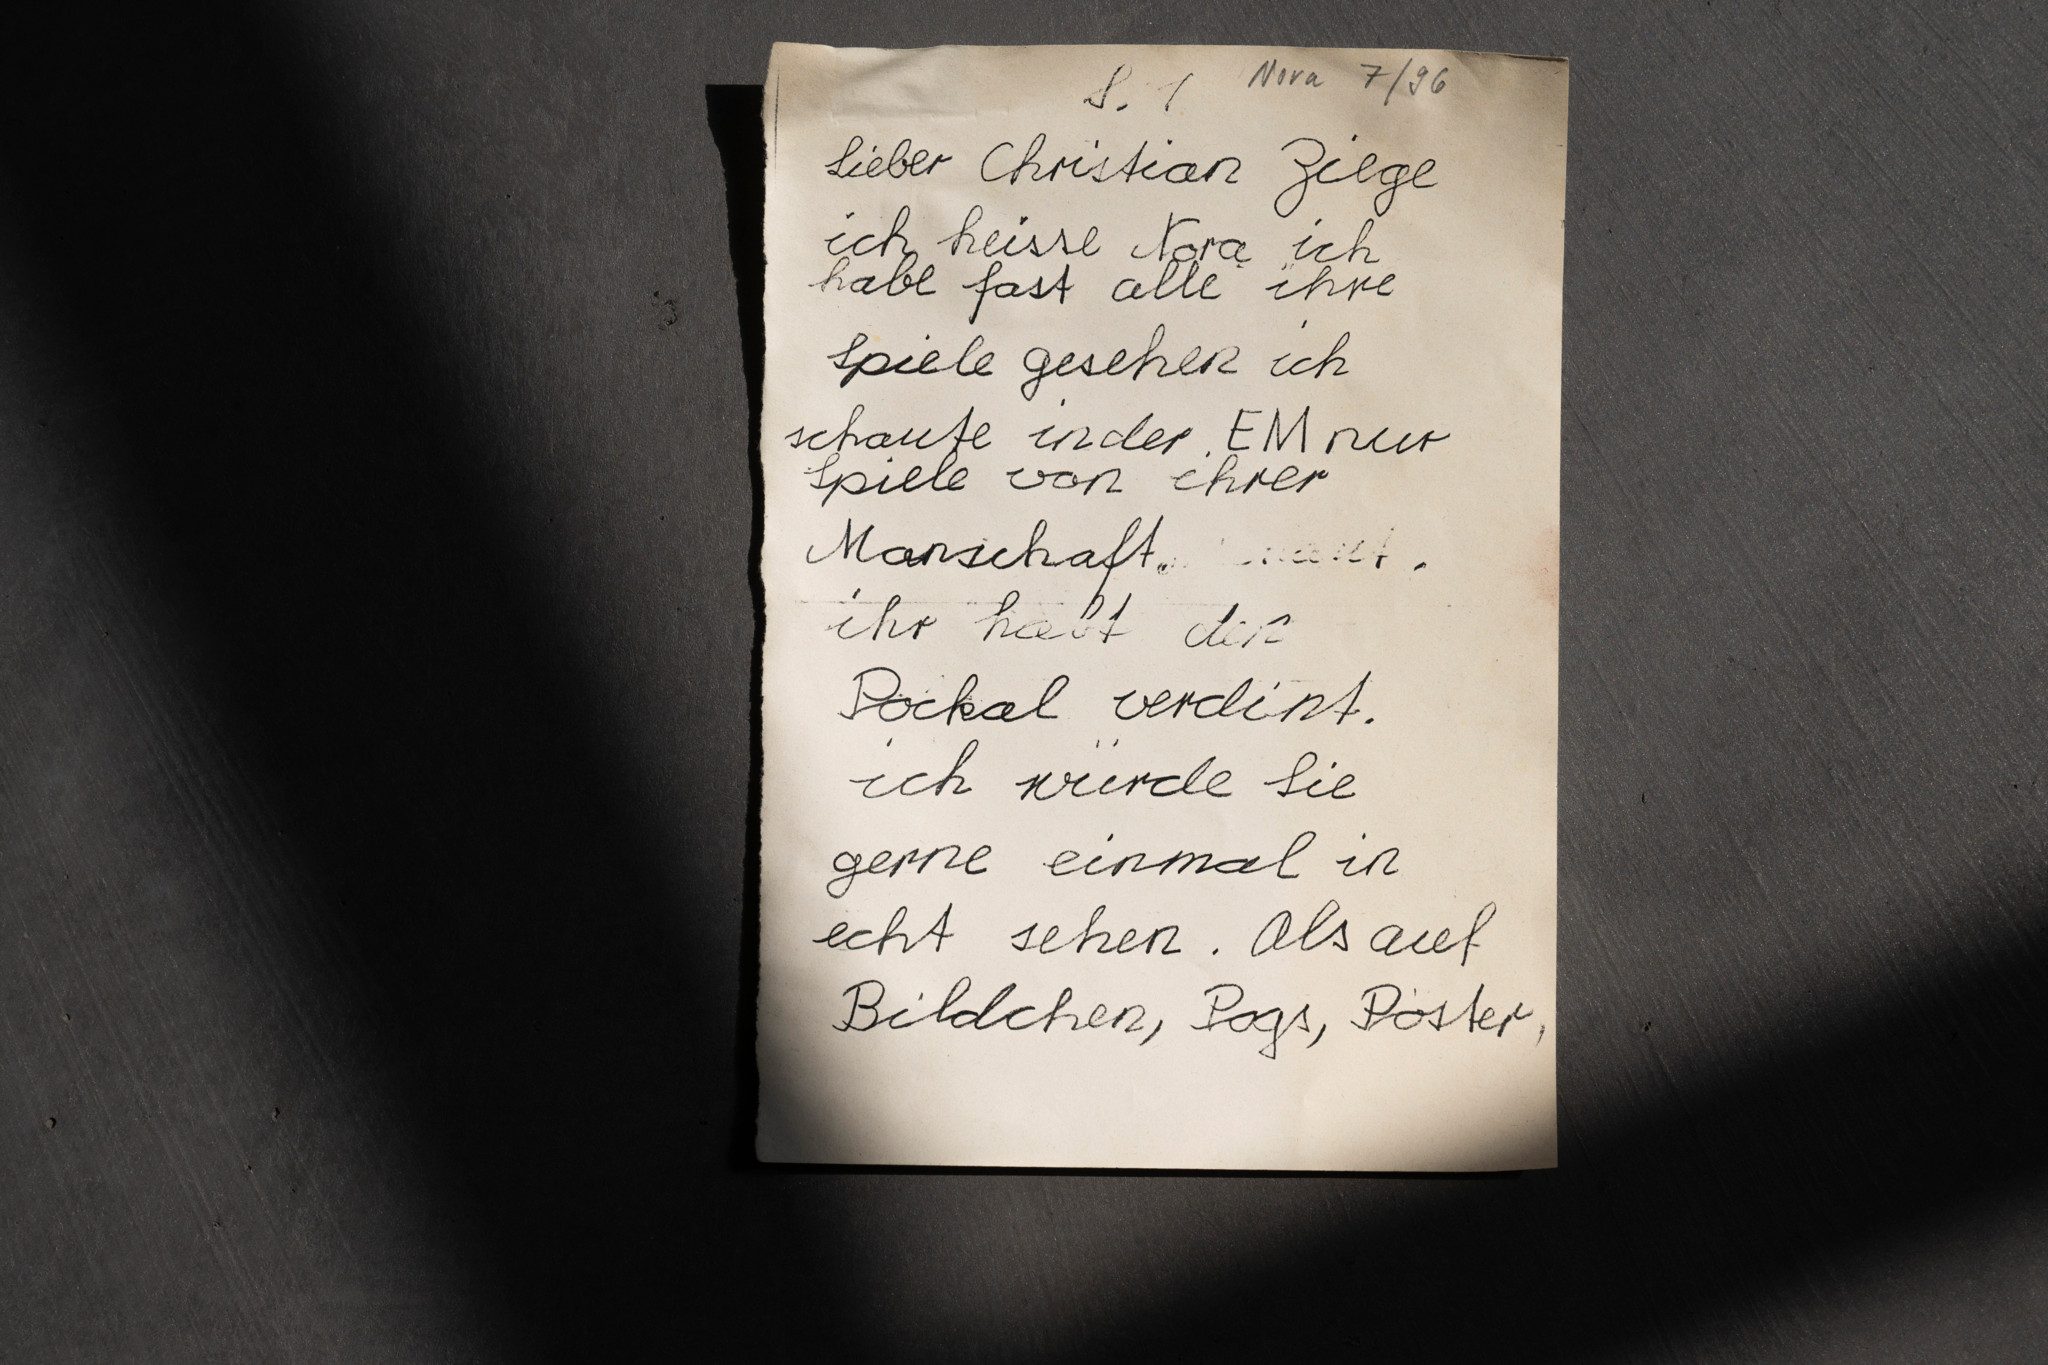 S. 1 Nora 7/96
Lieber Christian Ziege
ich heisse Nora ich
habe fast alle ihre
Spiele gesehen ich
schaute in der EM nur
Spiele von ihrer
Manschaft.
ihr habt den
Pockal verdint.
ich würde Sie
gerne einmal in
echt sehen. Als auf
Bildchen, Pogs, Poster,